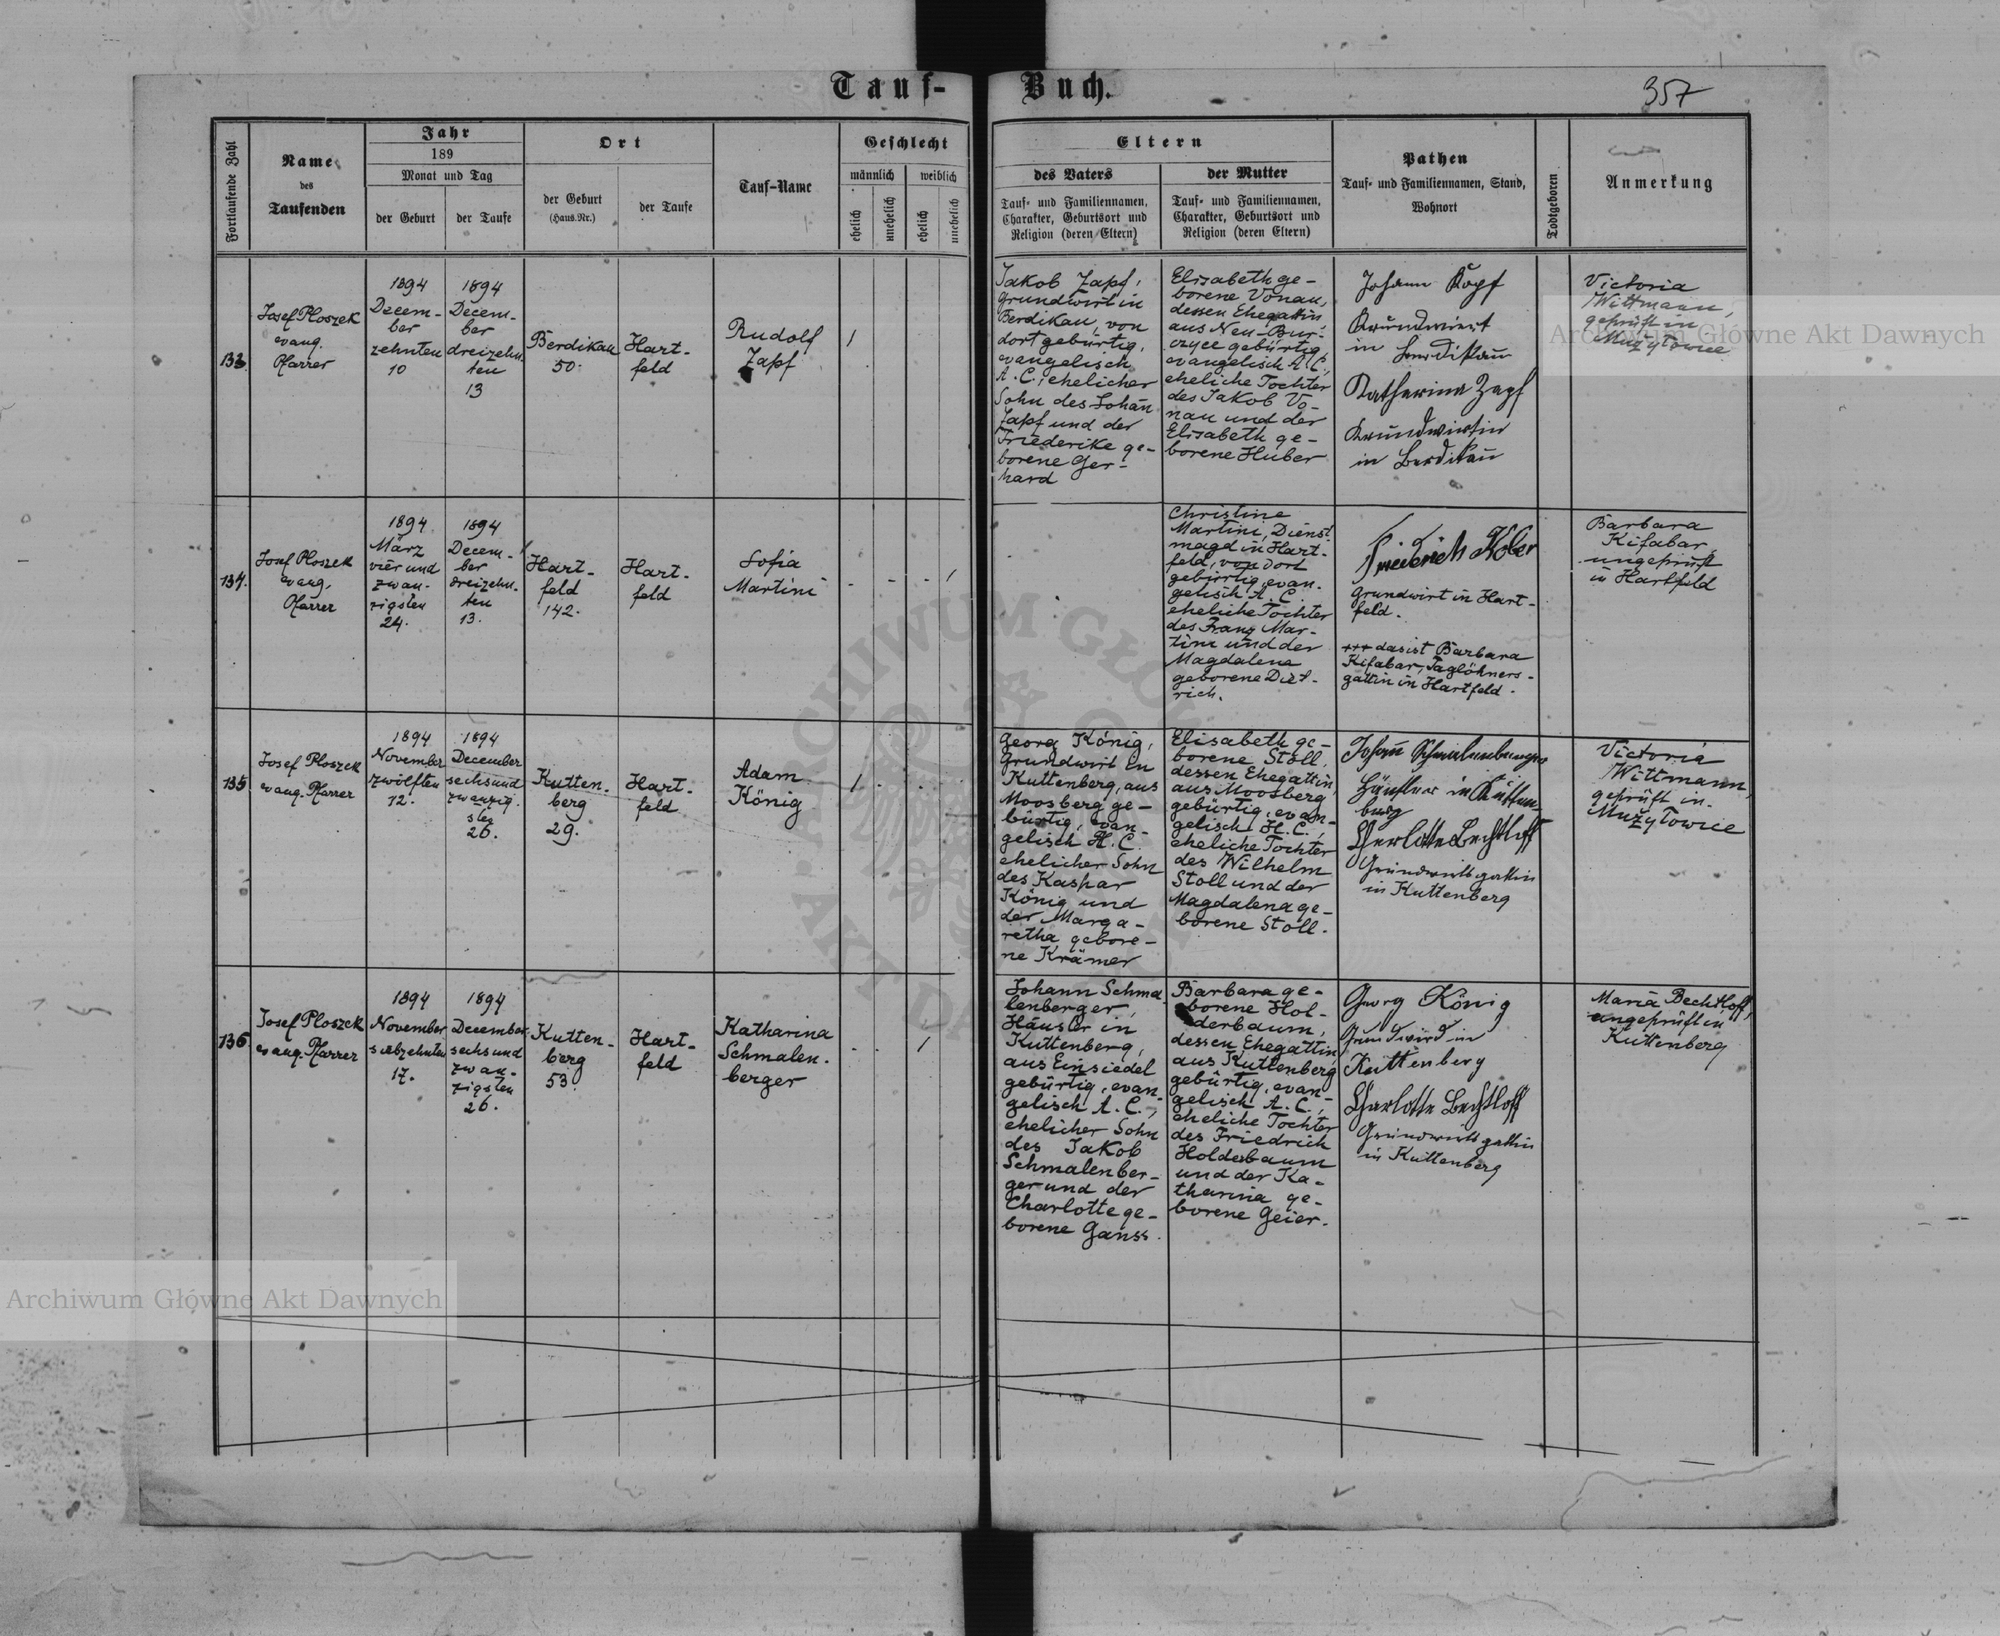 Tauf-Buch.
357
Fortlaufende Zahl
Name
des
Taufenden
Jahr
189
Monat und Tag
der Geburt
der Taufe
Ort
der Geburt
(Haus.Nr.)
der Taufe
Tauf-Name
Geschlecht
männlich
weiblich
ehelich
unehelich
ehelich
unehelich
Eltern
des Vaters
Tauf- und Familiennamen,
Charakter, Geburtsort und
Religion (deren Eltern)
der Mutter
Tauf- und Familiennamen,
Charakter, Geburtsort und
Religion (deren Eltern)
Pathen
Tauf- und Familiennamen, Stand,
Wohnort
Todtgeboren
Anmerkung
133
Josef Ploszek
evang.
Pfarrer
1894
Decem-
ber
zehnten
10
1894
Decem-
ber
dreizehn-
ten
13
Berdikau
50.
Hart-
feld
Rudolf
Zapf
1
Jakob Zapf,
Grundwirt in
Berdikau, von
dort gebürtig,
evangelisch
A.C., ehelicher
Sohn des Johan
Zapf und der
Friederike ge-
borene Ger-
hard
Elisabeth ge-
borene Vonau,
dessen Ehegattin,
aus Neu-Bur-
czyce gebürtig,
evangelisch A.C.,
eheliche Tochter
des Jakob Vo-
nau und der
Elisabeth ge-
borene Huber
Johann
Grundwiert
in Berdikau
Katharina Zapf
Grundwirtin
in Berdikau
Victoria
Wittmann,
geprüft in
Mużyłowice
134.
Josef Ploszek
evang.
Pfarrer
1894
März
vier und
zwan-
zigsten
24.
1894
Decem-
ber
dreizehn-
ten
13.
Hart-
feld
142.
Hart-
feld
Sofia
Martini
- - - 1
Christine
Martini, Dienst
magd in Hart-
feld, von dort
gebürtig, evan-
gelisch A.C.
eheliche Tochter
des Franz Mar-
tini und der
Magdalena
geborene Diet-
rich.
Friederich Kober
Grundwirt in Hart-
feld.
+++ das ist Barbara
Kifabar, Taglöhners-
gattin in Hartfeld.
Barbara
Kifabar,
ungeprüft
in Hartfeld
135
Josef Ploszek
evang. Pfarrer
1894
November
zwölften
12.
1894
December
sechsund
zwanzig-
sten
26.
Kutten-
berg
29.
Hart-
feld
Adam
König
1 . . .
Georg König,
Grundwirt in
Kuttenberg, aus
Moosberg ge-
bürtig, evan-
gelisch H.C.
ehelicher Sohn
des Kaspar
König und
der Marga-
retha gebore-
ne Krämer
Elisabeth ge-
borene Stoll,
dessen Ehegattin,
aus Moosberg
gebürtig, evan-
gelisch H.C.,
eheliche Tochter
des Wilhelm
Stoll und der
Magdalena ge-
borene Stoll.
Johann Schmalenberger
Häusler in Kutten-
berg
Charlotte Bechtloff
Grundwirtsgattin
in Kuttenberg
Victoria
Wittmann,
geprüft in
Mużyłowice
136
Josef Ploszek
evang. Pfarrer
1894
November
siebzehnten
17.
1894
December
sechsund
zwan-
zigsten
26.
Kutten-
berg
53.
Hart-
feld
Katharina
Schmalen-
berger
. . 1
Johann Schma-
lenberger,
Häusler in
Kuttenberg,
aus Einsiedel
gebürtig, evan-
gelisch A.C.,
ehelicher Sohn
des Jakob
Schmalenber-
ger und der
Charlotte ge-
borene Ganss.
Barbara ge-
borene Hol-
derbaum,
dessen Ehegattin,
aus Kuttenberg
gebürtig, evan-
gelisch A.C.,
eheliche Tochter
des Friedrich
Holderbaum
und der Ka-
tharina ge-
borene Geier.
Georg König
Grundwird in
Kuttenberg
Charlotte Bechtloff
Grundwirtsgattin
in Kuttenberg
Maria Bechtloff,
ungeprüft in
Kuttenberg
Archiwum Główne Akt Dawnych
Archiwum Główne Akt Dawnych